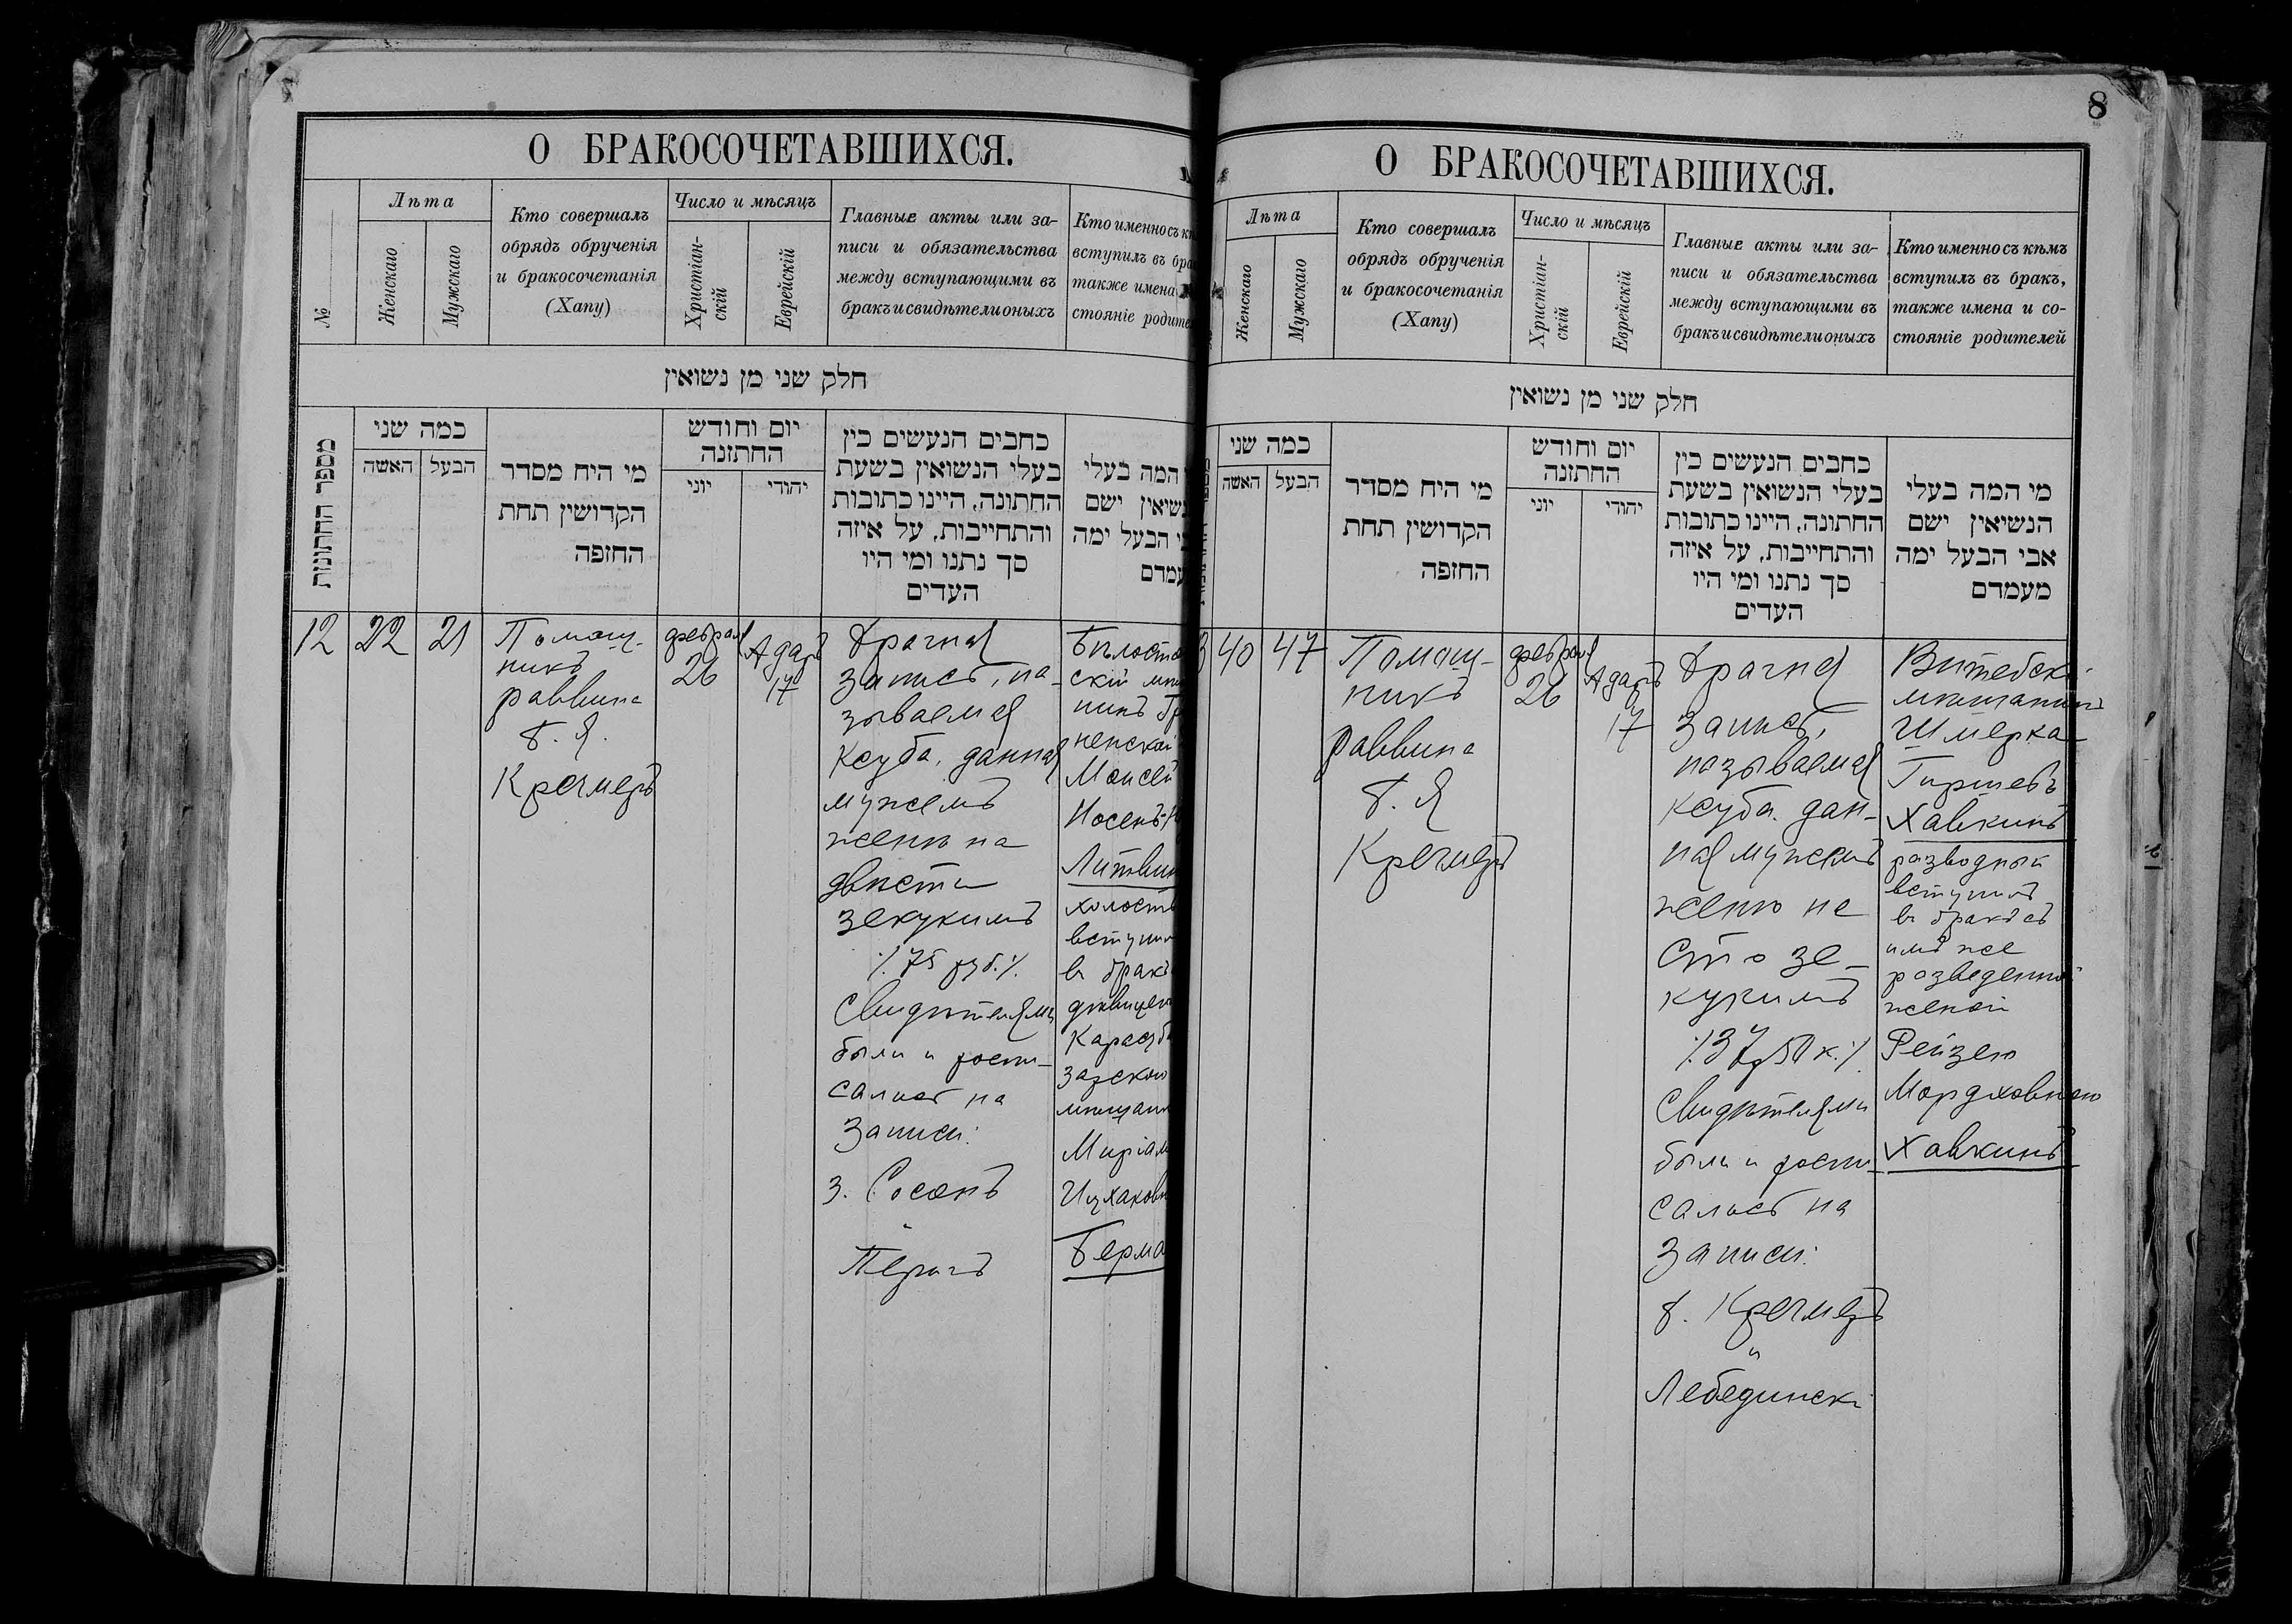 О БРАКОСОЧЕТАВШИХСЯ.
№
Лѣта
Женскаго
Мужскаго
Кто совершалъ
обрядъ обрученія
и бракосочетанія
(Хапу)
Число и мѣсяцъ
Христіан-
скій
Еврейскій
Главные акты или за-
писи и обязательства
между вступающими въ
бракъ и свидѣтели оныхъ
Кто именно съ
вступилъ въ
также имена
стояніе
חלק שני מן נשואין
מספר החתונות
כמה שני
האשה
הבעל
מי היח מסדר
הקדושין תחת
החזפה
יום וחודש
החתזנה
יוני
יהודי
כחבים הנעשים כין
בעלי הנשואין בשעת
החתונה, היינו כתובות
והתחייבות, על איזה
סך נתנו ומי היו
העדים
המה בעלי
ישם
הבעל ימה
12
22
21
Помощ-
никъ
раввина
Б. Я.
Кречмеръ
февраля
26
Адаръ
17
Брачная
запись, на-
зываемая
Ксуба, данная
мужемъ
женѣ на
двѣсти
зекукимъ
75 руб.
Свидѣтелями
были и роспи-
сались на
записи:
З. Сосонъ
и
скій
Моисей
вступил
въ бракъ
8
О БРАКОСОЧЕТАВШИХСЯ.
Лѣта
Женскаго
Мужскаго
Кто совершалъ
обрядъ обрученія
и бракосочетанія
(Хапу)
Число и мѣсяцъ
Христіан-
скій
Еврейскій
Главные акты или за-
писи и обязательства
между вступающими въ
бракъ и свидѣтели оныхъ
Кто именно съ кѣмъ
вступилъ въ бракъ,
также имена и со-
стояніе родителей
חלק שני מן נשואין
כמה שני
האשה
הבעל
מי היח מסדר
הקדושין תחת
החזפה
יום וחודש
החתזנה
יוני
יהודי
כחבים הנעשים כין
בעלי הנשואין בשעת
החתונה, היינו כתובות
והתחייבות, על איזה
סך נתנו ומי היו
העדים
מי המה בעלי
הנשיאין ישם
אבי הבעל ימה
מעמדם
3
40
47
Помощ-
никъ
раввина
Б. Я
Кречмеръ
февраля
26
Адаръ
17
Брачная
запись,
называемая
ксуба. дан-
ная мужемъ
женѣ на
сто зе-
кукимъ
37 р 50 к.
Свидѣтелями
были и роспи-
сались на
записи:
Б. Кречмеръ
и
Лебединскі
Витебскі
мѣщанинъ
Шмерка
Гиршевъ
Хавкинъ
разводный
вступилъ
въ бракъ съ
имъ же
разведенной
женой
Рейзею
Мордховною
Хавкинъ